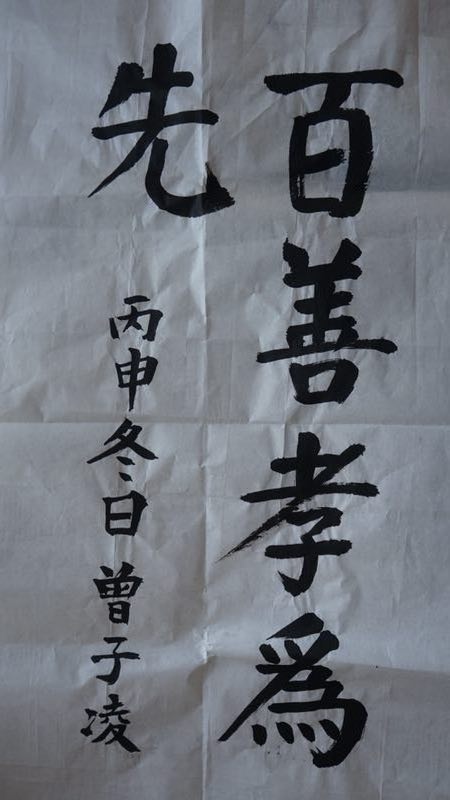 百善孝為
先
丙申冬日曾子凌